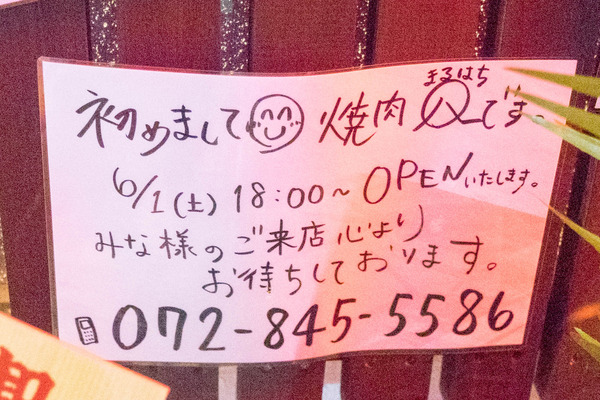 初めまして 焼肉 まるはち です。
6/1(土) 18:00~ OPENいたします。
みな様のご来店心より
お待ちしております。
072-845-5586